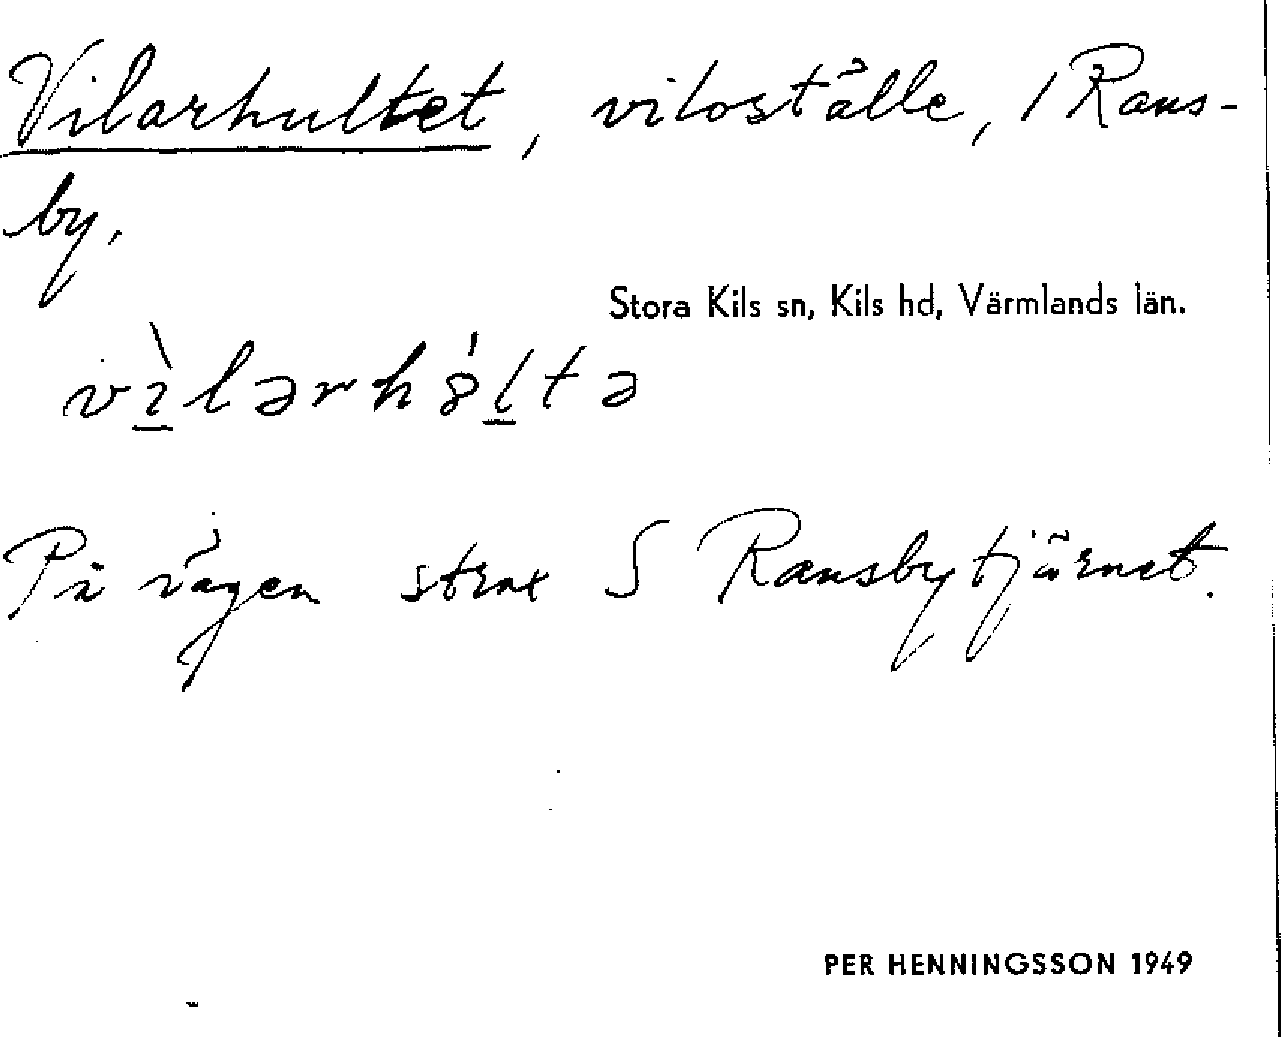 Vilarhultet, viloställe, / Rans-
by,
Stora Kils sn, Kils hd, Värmlands län.
vɪ̲̀lərh8́l̲tə
På vägen strax S Ransbytjärnet.
PER HENNINGSSON 1949